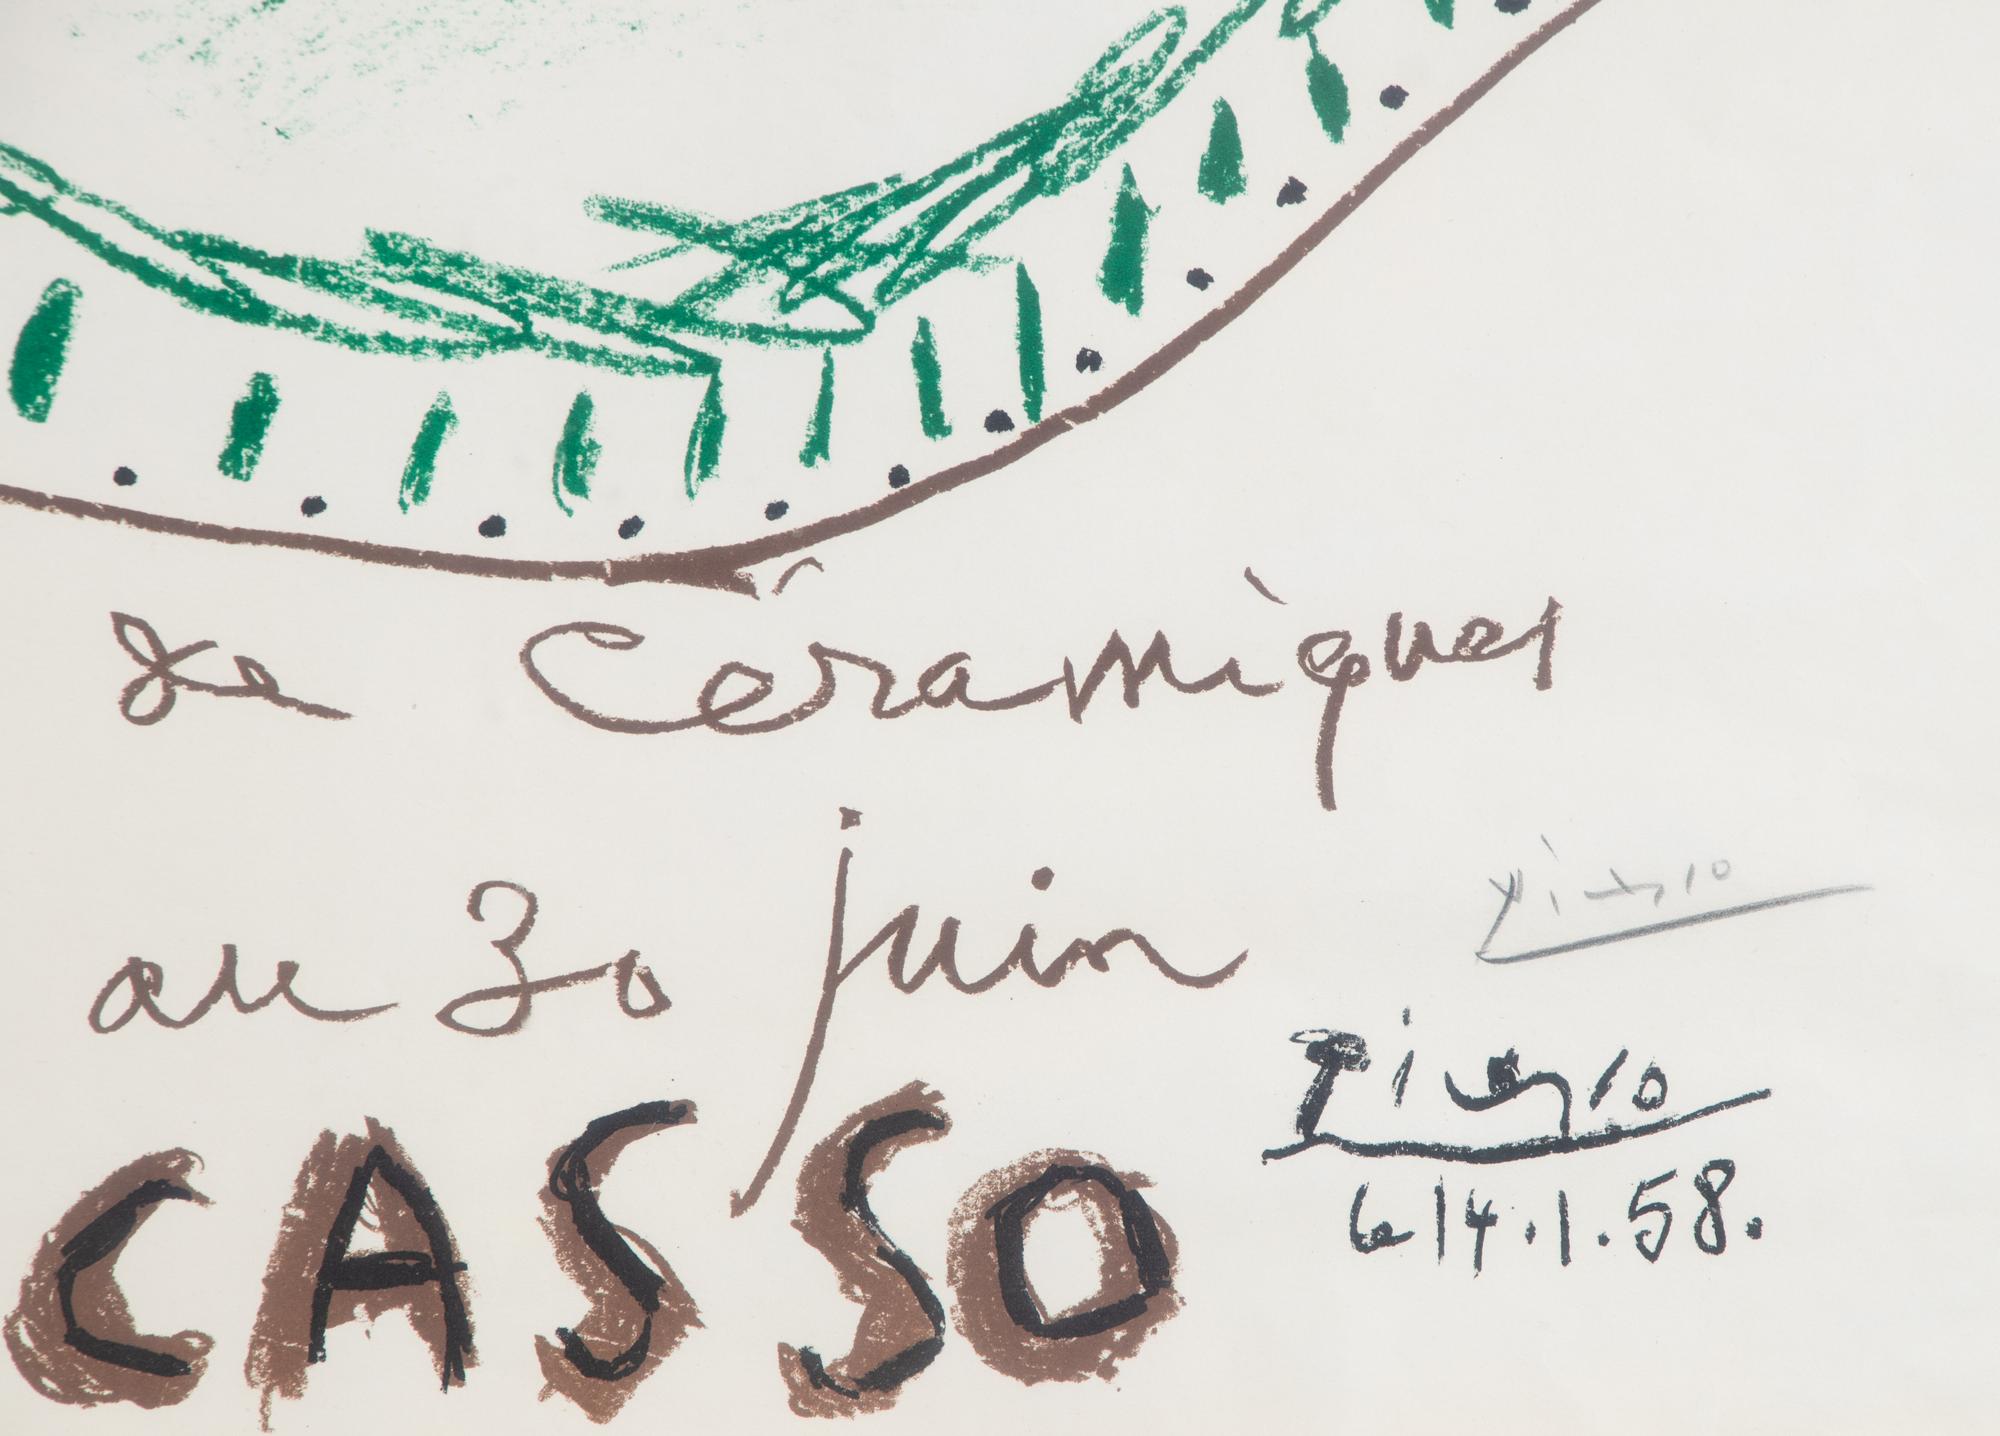 de Céramiques
au 30 juin
Picasso
Picasso
le 14.1.58.
CASSO